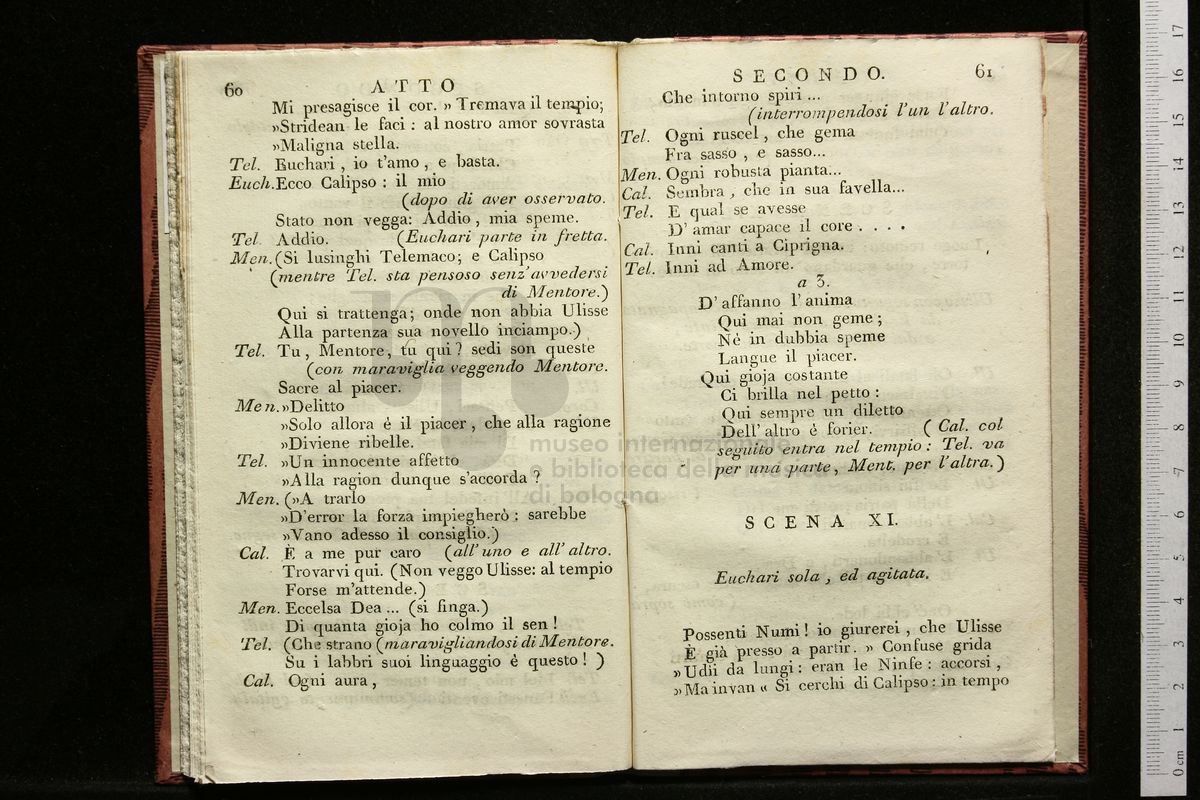 60 ATTO
Mi presagisce il cor. » Tremava il tempio;
»Stridean le faci : al nostro amor sovrasta
»Maligna stella.
Tel. Euchari , io t'amo , e basta.
Euch. Ecco Calipso : il mio
(dopo di aver osservato.
Stato non vegga: Addio , mia speme.
Tel. Addio. (Euchari parte in fretta.
Men. (Si lusinghi Telemaco; e Calipso
(mentre Tel. sta pensoso senz'avvedersi
di Mentore.)
Qui si trattenga; onde non abbia Ulisse
Alla partenza sua novello inciampo.)
Tel. Tu, Mentore, tu qui? sedi son queste
(con maraviglia veggendo Mentore.
Sacre al piacer.
Men. »Delitto
»Solo allora é il piacer , che alla ragione
»Diviene ribelle.
Tel. »Un innocente affetto
»Alla ragion dunque s'accorda ?
Men. (»A trarlo
»D'error la forza impiegherò : sarebbe
»Vano adesso il consiglio.)
Cal. È a me pur caro (all' uno e all' altro.
Trovarvi qui. (Non veggo Ulisse: al tempio
Forse m'attende.)
Men. Eccelsa Dea ... (si finga.)
Di quanta gioja ho colmo il sen !
Tel. (Che strano (maravigliandosi di Mentore.
Su i labbri suoi linguaggio é questo ! )
Cal. Ogni aura ,
SECONDO. 61
Che intorno spiri ...
(interrompendosi l'un l'altro.
Tel. Ogni ruscel , che gema
Fra sasso , e sasso...
Men. Ogni robusta pianta...
Cal. Sembra , che in sua favella...
Tel. E qual se avesse
D' amar capace il core . . . .
Cal. Inni canti a Ciprigna.
Tel. Inni ad Amore.
a 3.
D' affanno l' anima
Qui mai non geme ;
Né in dubbia speme
Langue il piacer.
Qui gioja costante
Ci brilla nel petto :
Qui sempre un diletto
Dell' altro é forier. ( Cal. col
seguito entra nel tempio : Tel. va
per una parte, Ment. per l'altra.)
SCENA XI.
Euchari sola , ed agitata.
Possenti Numi ! io giurerei , che Ulisse
È già presso a partir. » Confuse grida
»Udii da lungi : eran le Ninfe : accorsi ,
»Ma invan « Si cerchi di Calipso : in tempo
museo internazionale
e biblioteca della musica
di bologna
0 cm 1 2 3 4 5 6 7 8 9 10 11 12 13 14 15 16 17